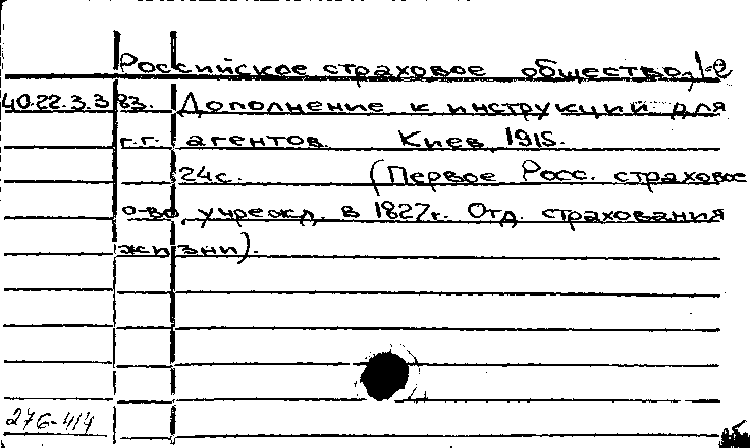 Российское страховое общество, 1-е
40.22.3.3.83. Дополнение к инструкций для
г.г. агентов. Киев, 1915.
24с. (Первое Росс. страховое
о-во, учрежд. в 1827г. Отд. страхования
жизни).
276-414